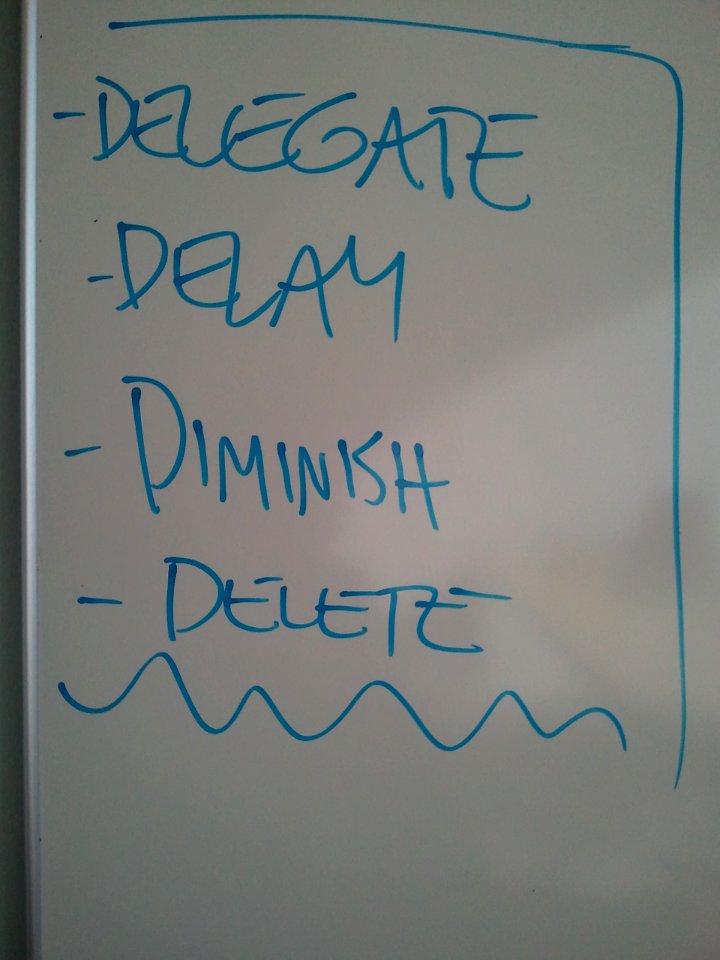 - DELEGATE
- DELAY
- DIMINISH
- DELETE